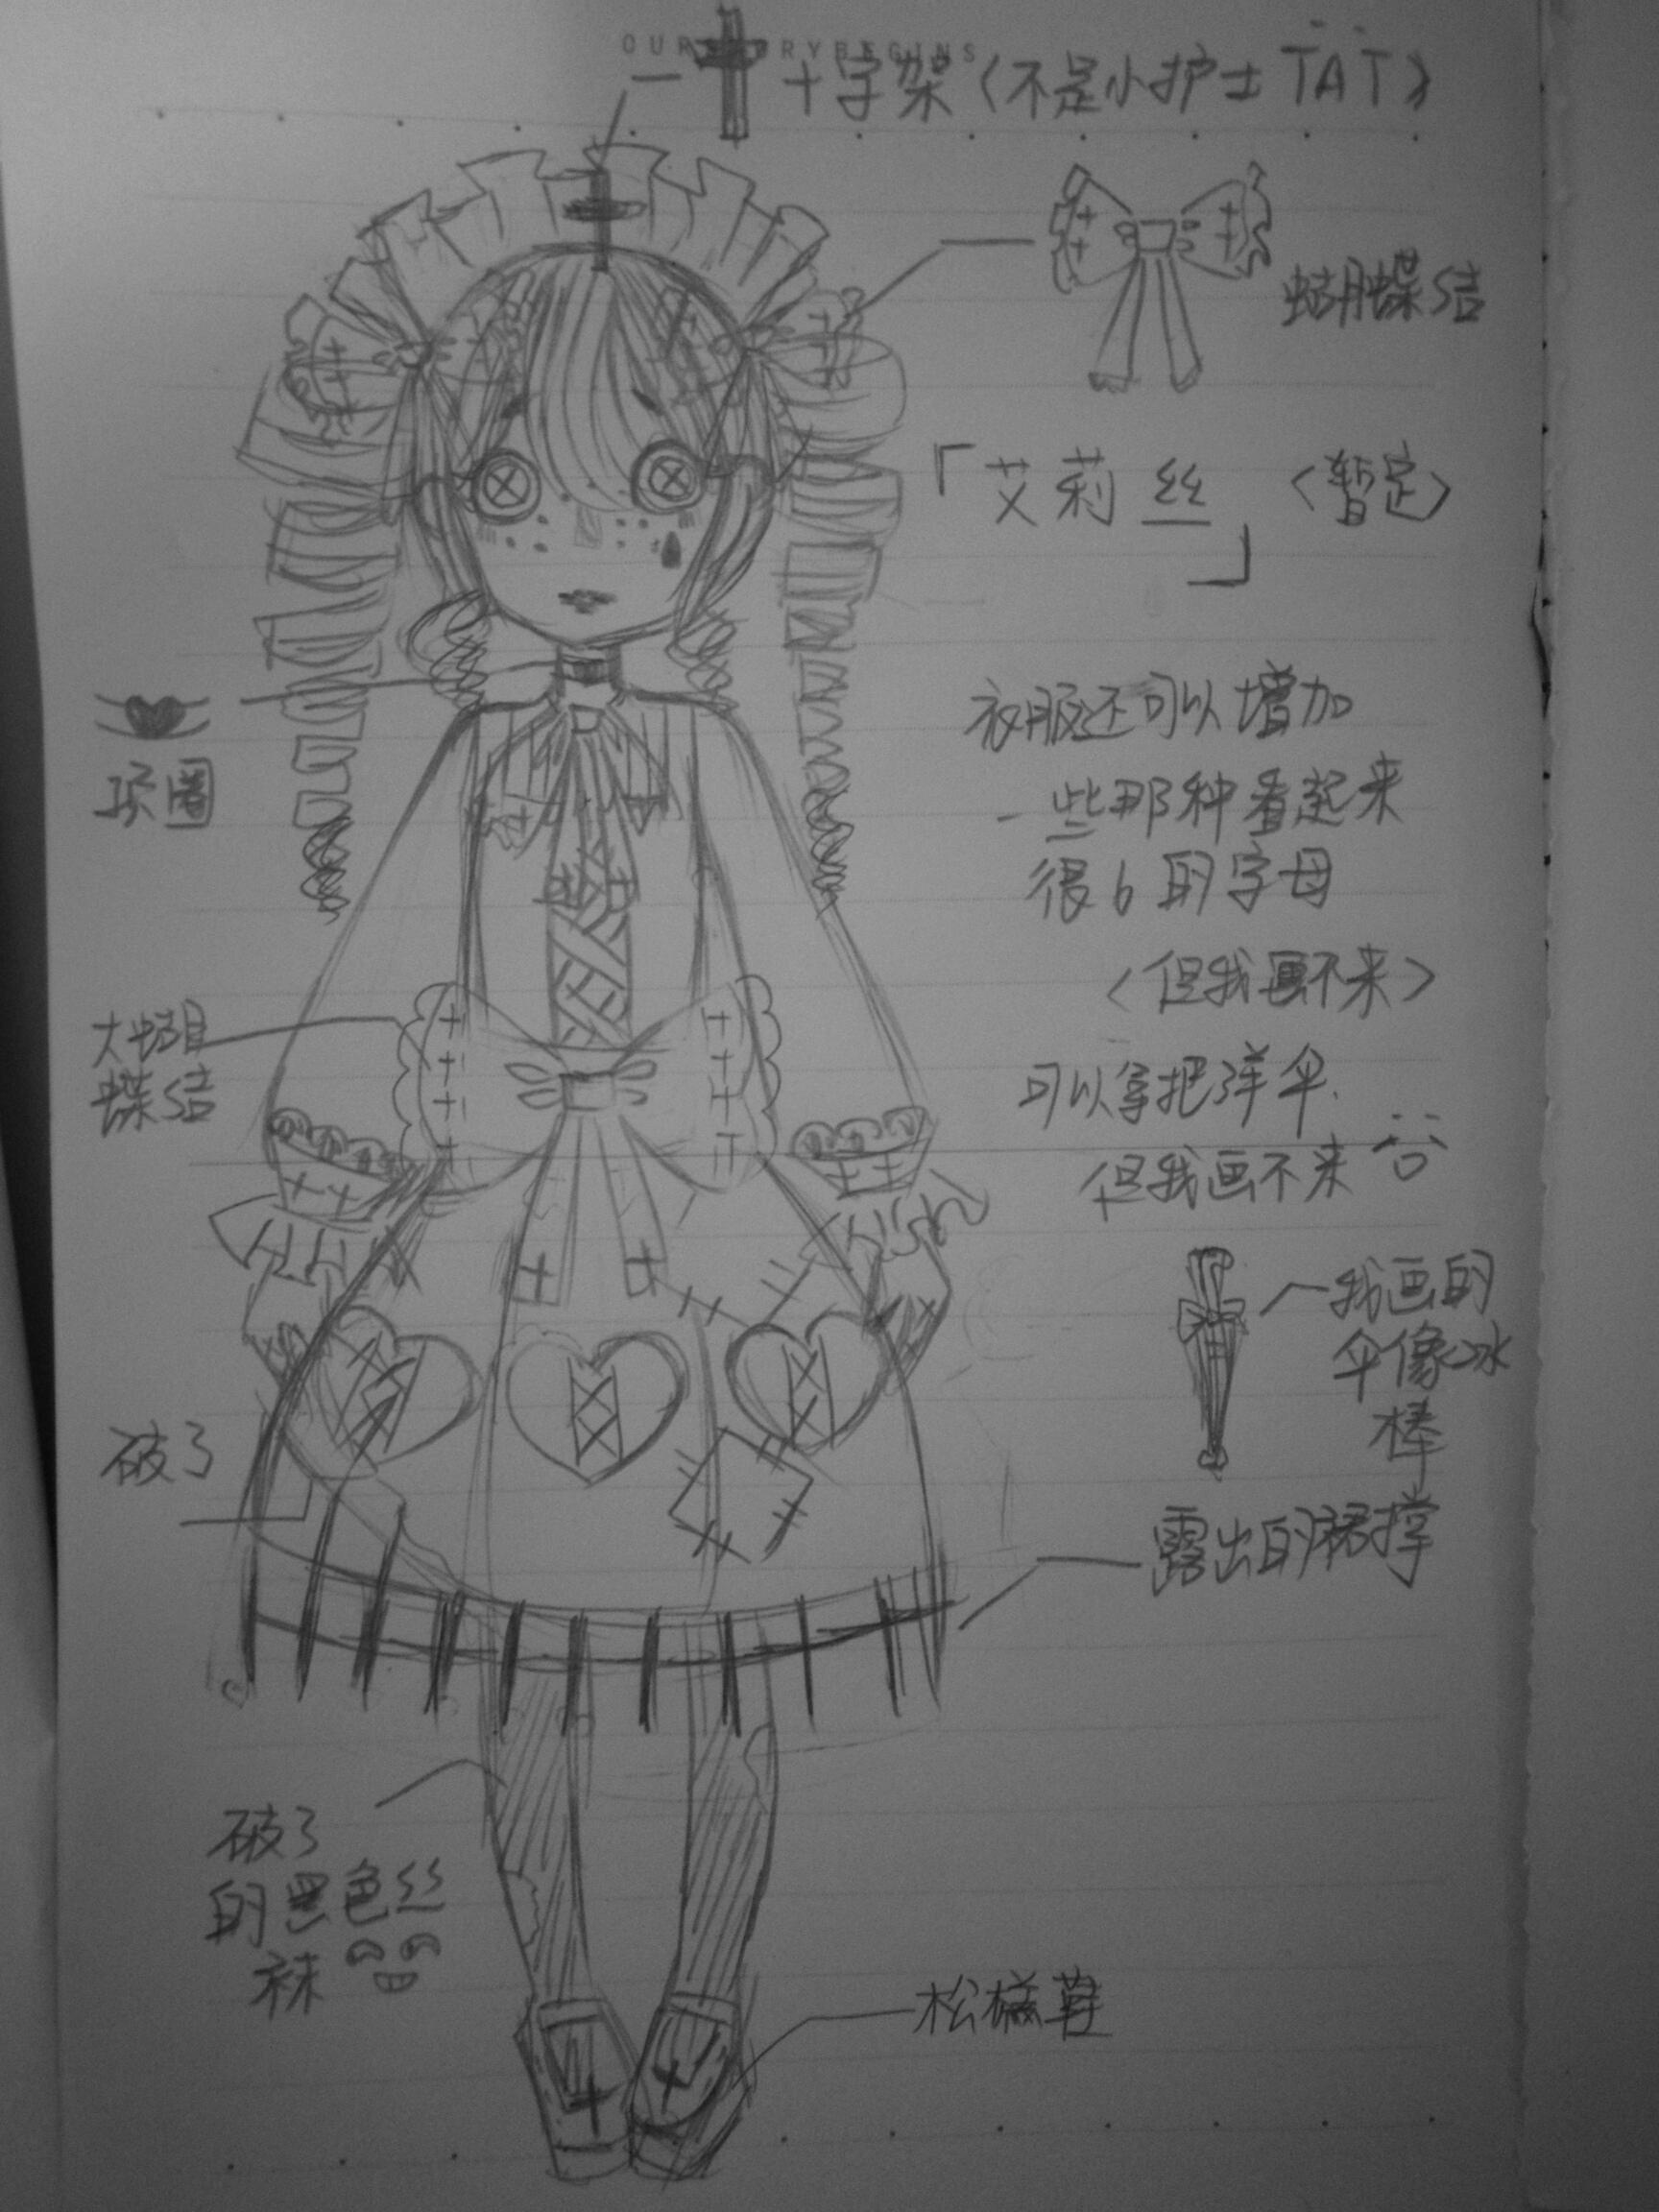 十字架（不是小护士 TAT）
蝴蝶结
「艾莉丝」〈暂定〉
项圈
衣服还可以增加
一些那种看起来
很6的字母
〈但我画不来〉
大蝴
蝶结
可以拿把洋伞
但我画不来
我画的
伞像冰
棒
破了
露出的裙撑
破了
的黑色丝
袜
松糕鞋